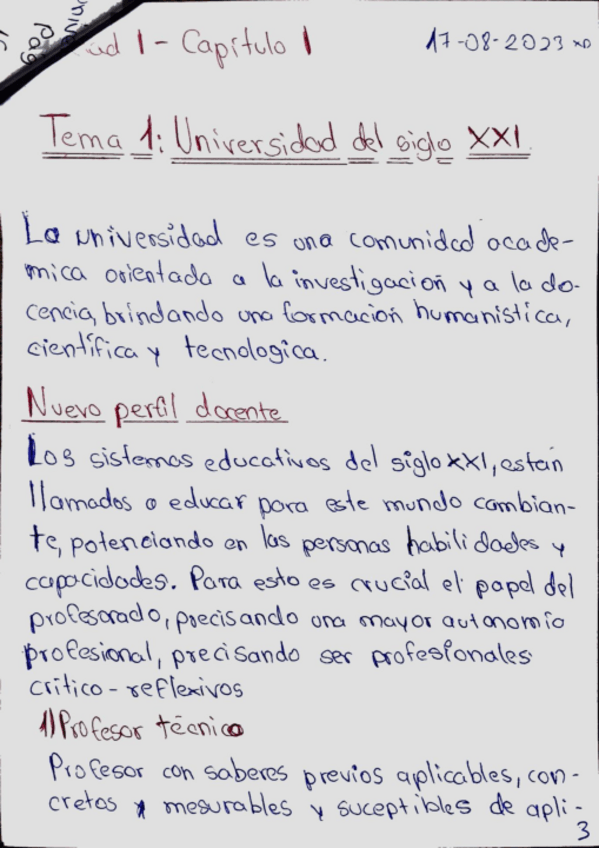 ad 1 - Capítulo 1
17-08-2023
Tema 1: Universidad del siglo XXI
La universidad es una comunidad acade-
mica orientada a la investigación y a la do-
cencia, brindando una formación humanística,
científica y tecnologica.
Nuevo perfil docente
Los sistemas educativos del siglo XXI, están
llamados a educar para este mundo cambian-
te, potenciando en las personas habilidades y
capacidades. Para esto es crucial el papel del
profesorado, precisando una mayor autonomía
profesional, precisando ser profesionales
critico - reflexivos
1) Profesor técnico
Profesor con saberes previos aplicables, con-
cretos y mesurables y suceptibles de apli-
3